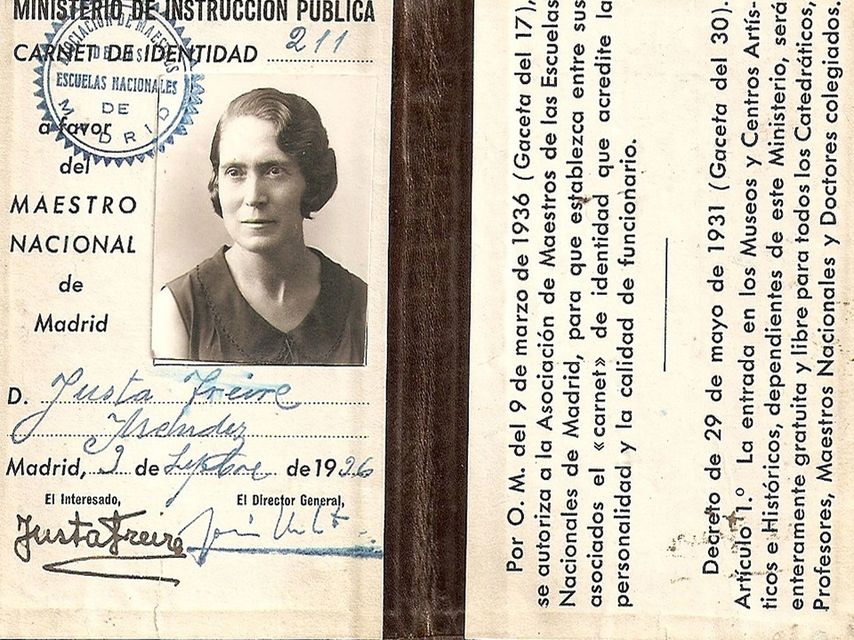 MINISTERIO DE INSTRUCCIÓN PÚBLICA
CARNET DE IDENTIDAD 211
ASOCIACIÓN DE MAESTROS
DE LAS
ESCUELAS NACIONALES
DE
MADRID
a favor
del
MAESTRO
NACIONAL
de
Madrid
D. Justa Freire
Méndez
Madrid, 2 de Septbre de 1936
El Interesado, El Director General,
Justa Freire
Por O. M. del 9 de marzo de 1936 (Gaceta del 17),
se autoriza a la Asociación de Maestros de las Escuelas
Nacionales de Madrid, para que establezca entre sus
asociados el «carnet» de identidad que acredite la
personalidad y la calidad de funcionario.
Decreto de 29 de mayo de 1931 (Gaceta del 30).
Artículo 1.º La entrada en los Museos y Centros Artís-
ticos e Históricos, dependientes de este Ministerio, será
enteramente gratuita y libre para todos los Catedráticos,
Profesores, Maestros Nacionales y Doctores colegiados.